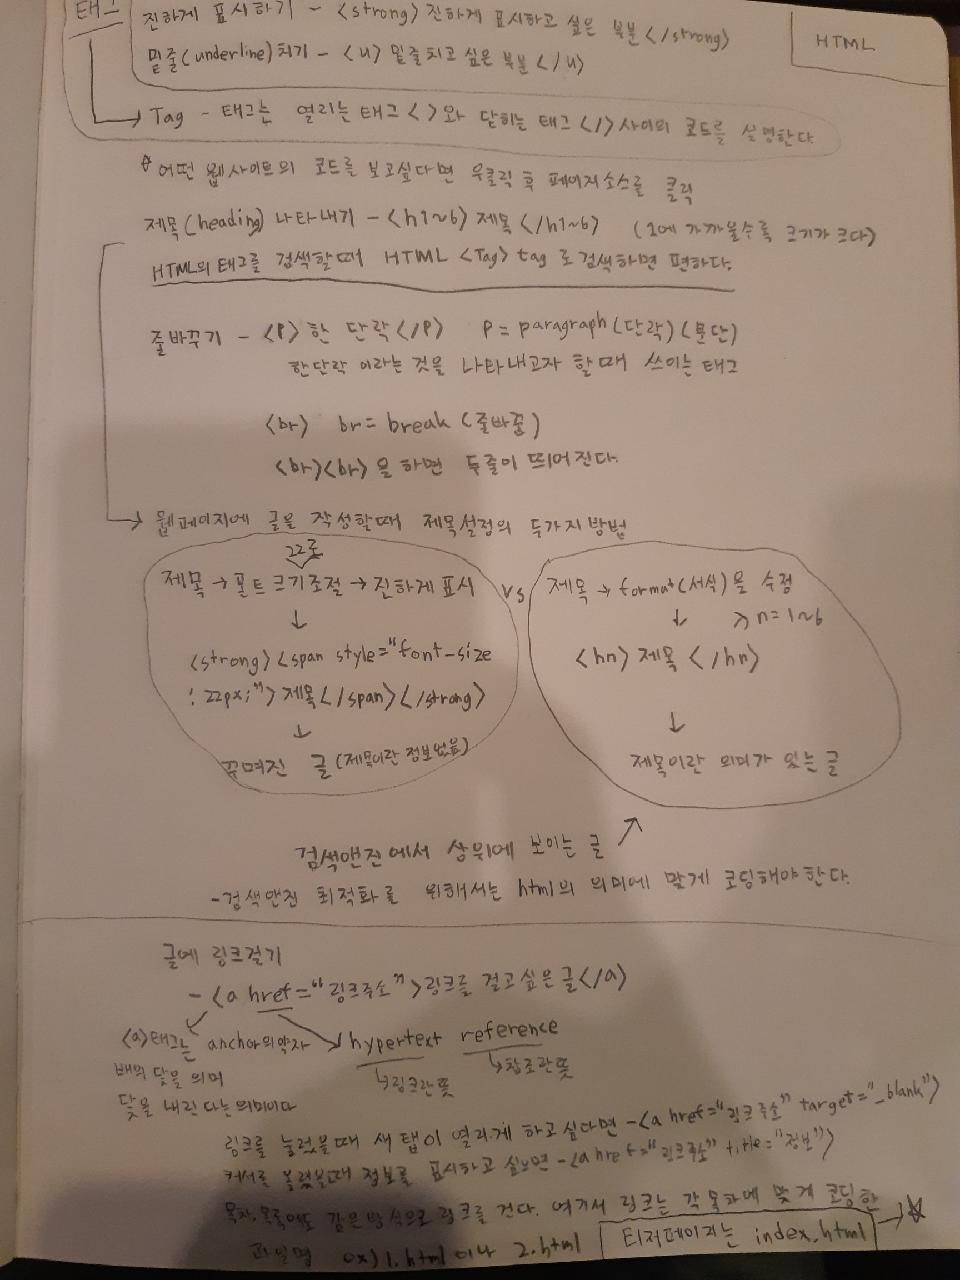 태그
진하게 표시하기 - <strong>진하게 표시하고 싶은 부분</strong>
HTML
밑줄(underline)치기 - <u> 밑줄치고 싶은 부분</u>
Tag - 태그는 열리는 태그 < >와 닫히는 태그 </>사이의 코드를 설명한다.
☆어떤 웹사이트의 코드를 보고싶다면 우클릭 후 페이지소스를 클릭
제목(heading) 나타내기 - <h1~6> 제목 </h1~6> (1에 가까울수록 크기가 크다)
HTML의 태그를 검색할때 HTML <Tag> tag 로 검색하면 편하다.
줄바꾸기 - <P> 한 단락</P> P = paragraph(단락)(문단)
한단락 이라는 것을 나타내고자 할때 쓰이는 태그
<br> br = break (줄바꿈)
<br><br>을 하면 두줄이 띄어진다.
웹페이지에 글을 작성할때 제목설정의 두가지방법
22로
제목→폰트 크기조절→진하게 표시
↓
<strong><span style="font-size
: 22px;">제목</span></strong>
↓
꾸며진 글(제목이란 정보없음)
vs
제목→format(서식)을 수정
↓ n=1~6
<hn> 제목 </hn>
↓
제목이란 의미가 있는 글
검색앤진에서 상위에 보이는 글
-검색앤진 최적화를 위해서는 html의 의미에 맞게 코딩해야한다.
글에 링크걸기
- <a href="링크주소">링크를 걸고싶은글</a>
<a>태그는 anchor의약자
배의 닻을 의미
닻을 내린다는의미이다
hypertext reference
→링크란뜻
→참조란뜻
링크를 눌렀을때 새 탭이 열리게 하고싶다면 - <a href="링크주소" target="_blank">
커서를 올렸을때 정보를 표시하고 싶으면 - <a href="링크주소" title="정보">
목차, 목록에도 같은방식으로 링크를 건다. 여기서 링크는 각 목차에 맞게 코딩한
파일명 ex) 1.html 이나 2.html
티저페이지는 index.html →☆